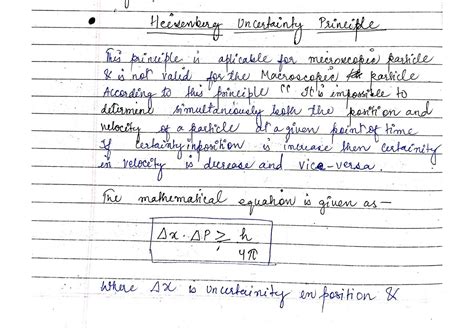 Heisenberg Uncertainty Principle
This principle is aplicable for microscopic particle
& is not valid for the Macroscopic particle
According to this principle "It's impossible to
determine simultaneously both the position and
velocity of a particle at a given point of time
If certainty in position is increase then certainty
in velocity is decrease and vice-versa.
The mathematical equation is given as —
Δx . ΔP ≥ h
4π
where Δx is uncertainity in position &